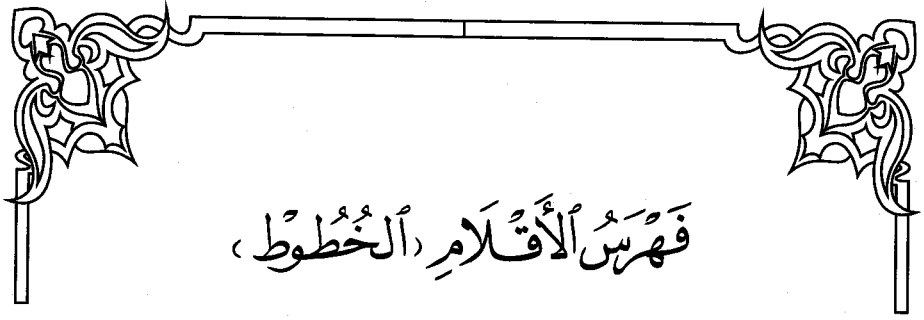 فَهْرَسُ ٱلْأَقْلَامِ (ٱلخُطُوْط)